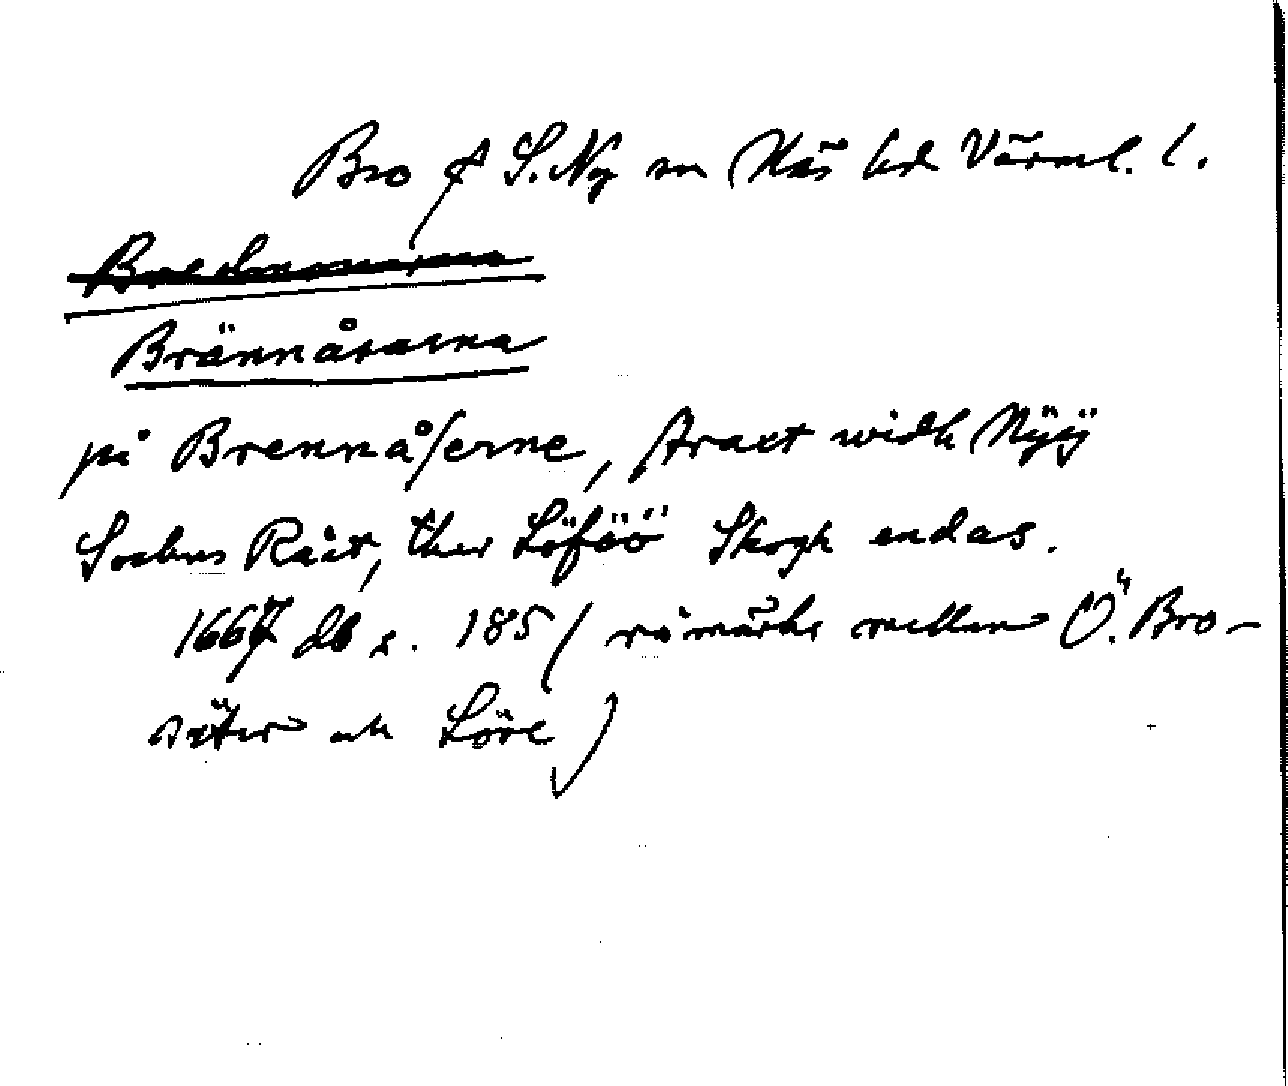 Bro & S. Ny sn Näs hd Värml. l.
Brännåsarna
på Brennåserne, straxt widh Nÿÿ
Sochns Råår, ther Löföö Skogh endas.
1667 db s. 185 (råmärke mellan Ö. Bro-
säter och Löve)